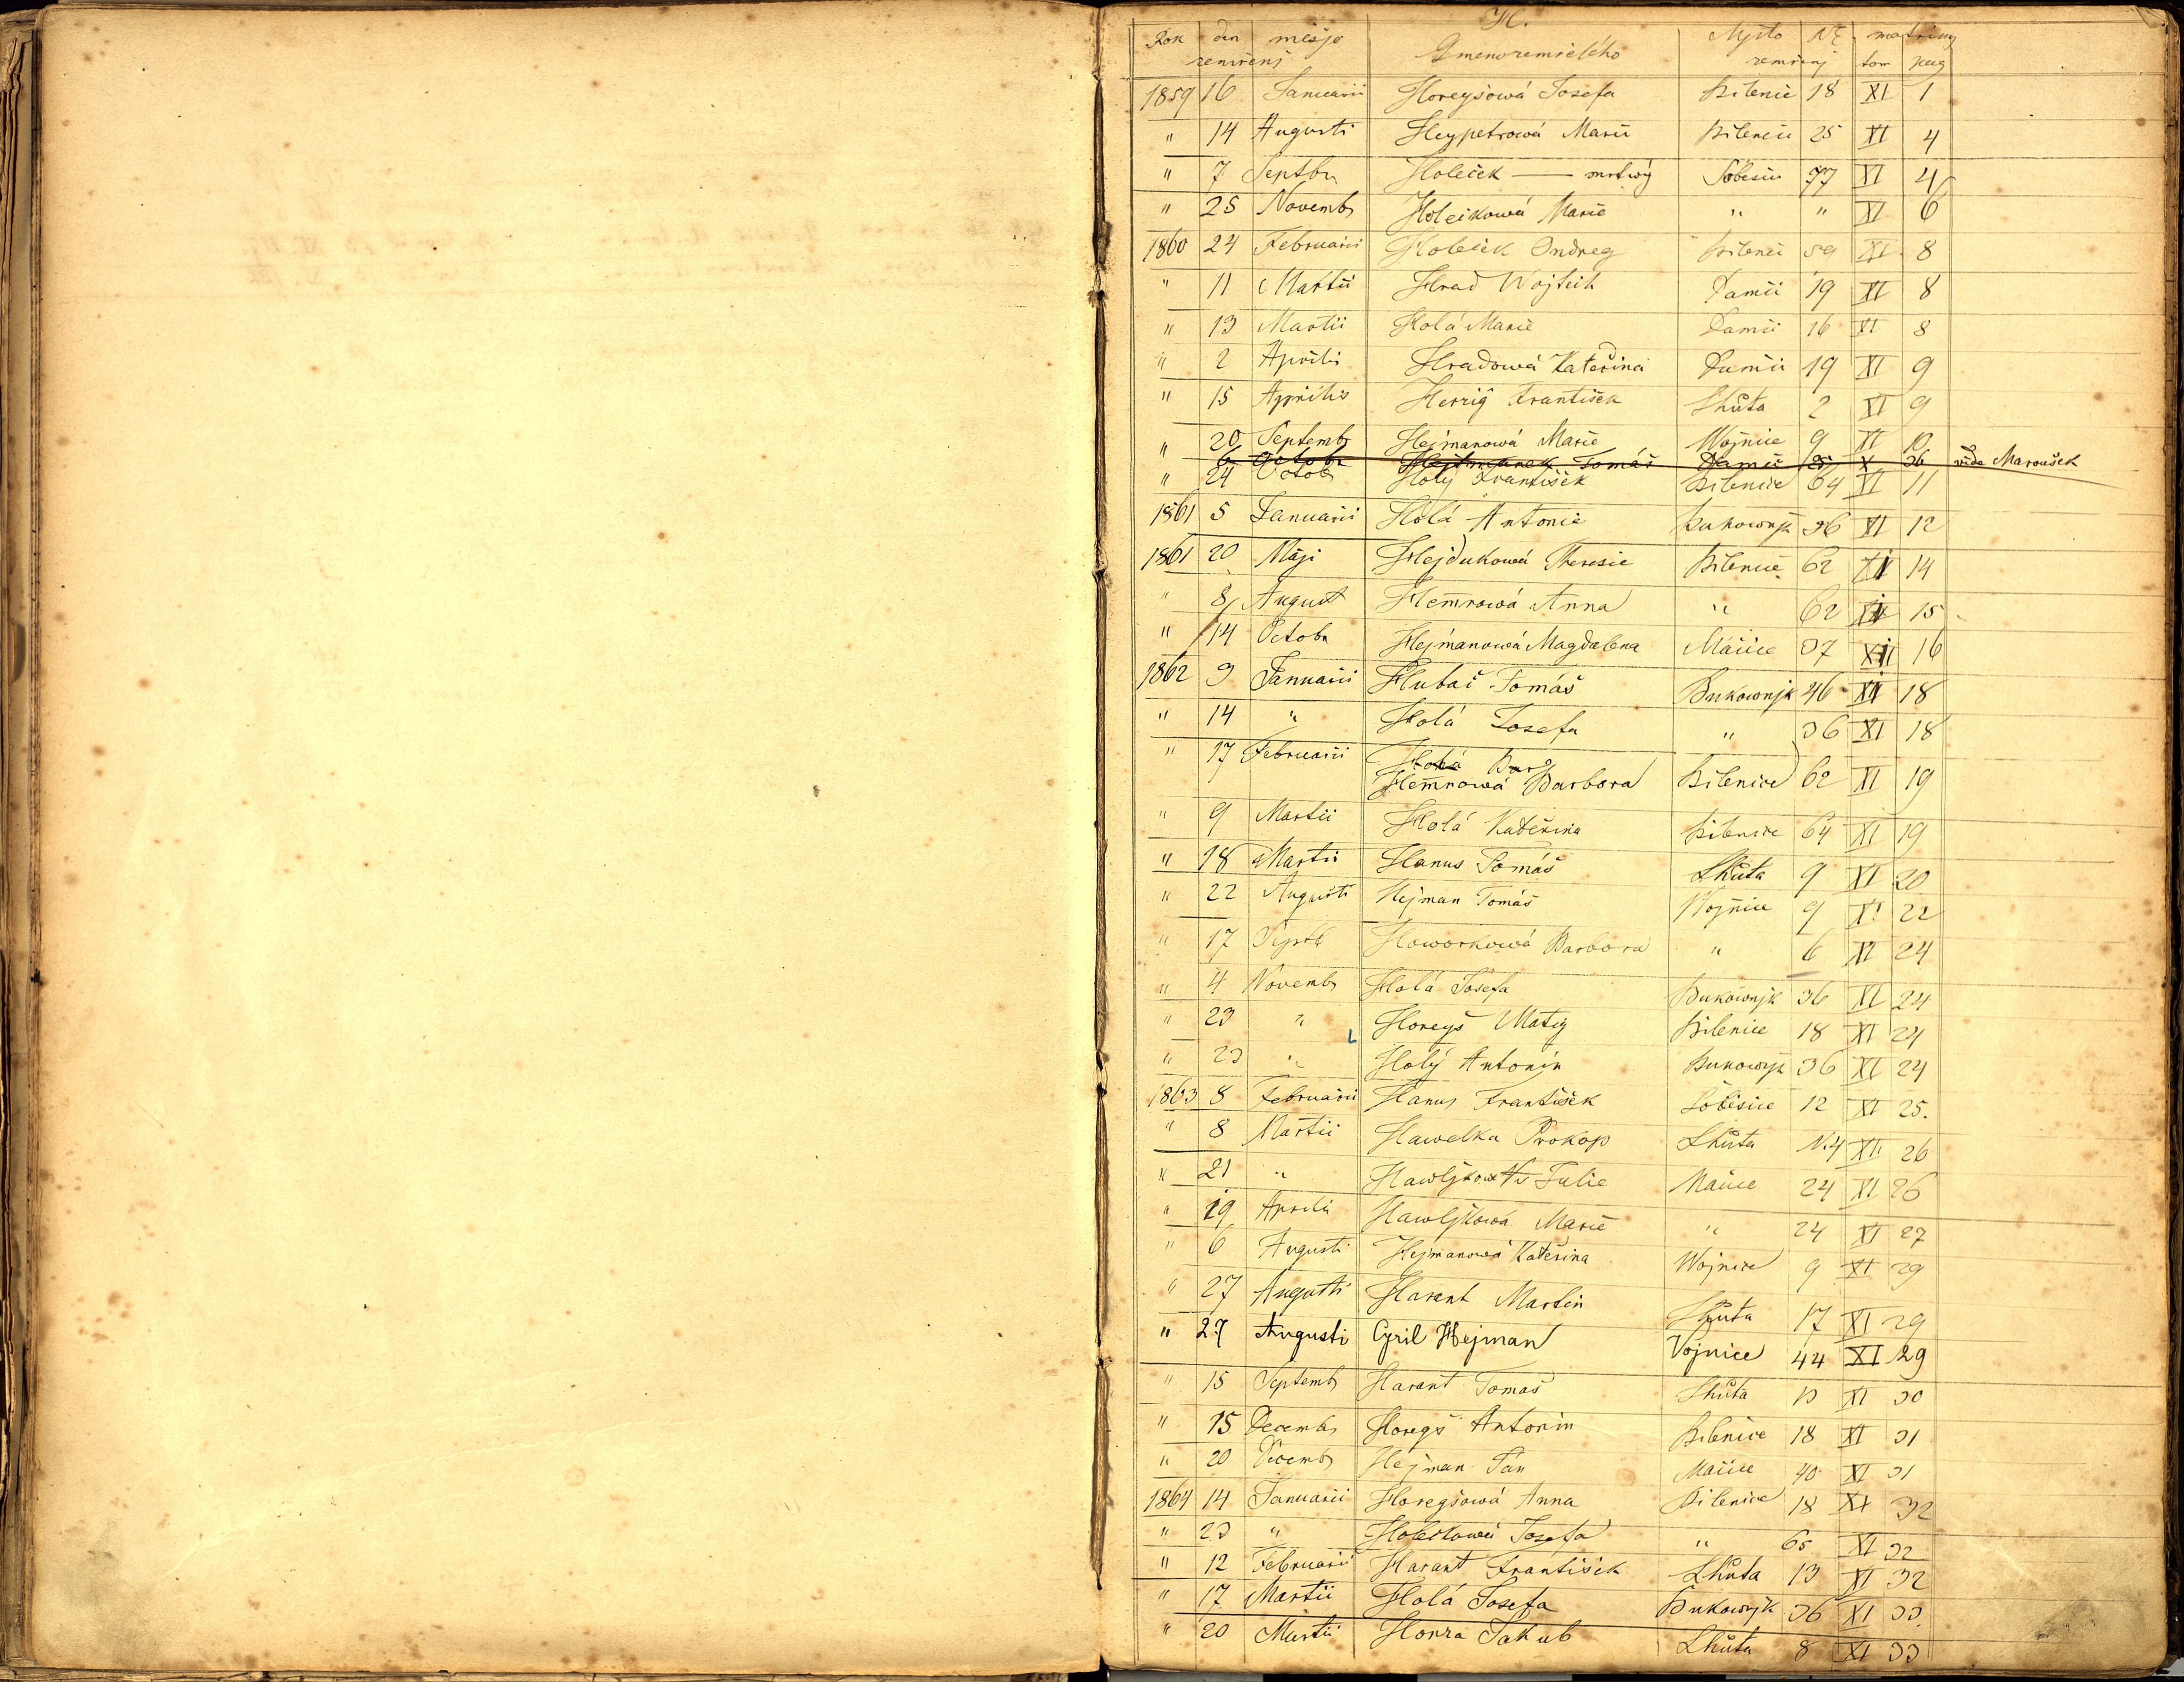 H.
Rok den měsjc Gmeno zemřelého Mjsto NC. matriky
zemřenj zemřenj tom pag
1859 16 Januarii Horeyšowá Josefa Bilenic 18 XI 1
" 14 Augusti Heypetrowá Marie 25 XI 4
" 7 Septbr Holeček — mrtwý 57 XI 4
" 25 Novembr Holečkowá Marie " " XI 6
1860 24 Februarii Holeček Ondreg 59 XI 8
" 11 Martii Hrad Wojtěch Damic 19 XI 8
" 13 Martii Holá Marie Damic 16 XI 8
" 2 Aprilis Hradowá Kateřina Damic 19 XI 9
" 15 Aprilis Herrig František Lhůta 2 XI 9
" 20 Septembr Hejmanowá Marie Wojnice 9 XI 10
6 Octobr Hejtmanek Tomáš Damic X 36 vide Maroušek
" 24 Octob Holý František Bilenice 64 XI 11
1861 5 Januarii Holá Antonie Bukownjk 36 XI 12
1861 20 Maji Hejdukowá Theresie Bilenice 62 XI 14
" 8 August Hemrowá Anna " 62 XI 15
" 14 Octobr Hejmanowá Magdalena Mačice 37 XI 16
1862 3 Januarii Hubač Tomáš Bukownjk 46 XI 18
" 14 " Holá Josefa " 36 XI 18
" 17 Februarii Holá Barb
Hemrowá Barbora Bilenice 62 XI 19
" 9 Martii Holá Kateřina Bilenice 64 XI 19
" 18 Martii Hanus Tomáš Lhůta 9 XI 20
" 22 Augusti Hejman Tomáš Wojnice 9 XI 22
" 17 Septb Howorkowá Barbora " 6 XI 24
" 4 Novembr Holá Josefa Bukownjk 36 XI 24
" 23 " Horeyš Matěj Bilenice 18 XI 24
" 23 " Holý Antonín Bukownjk 36 XI 24
1863 8 Februarii Hanus František Soběsice 12 XI 25.
" 8 Martii Hawelka Prokop Lhůta 14 XI 26
" 21 " Julie Mačice 24 XI 26
" 19 Aprilis Hawljkowá Marie " 24 XI 27
" 6 Augusti Hejmanowá Kateřina Wojnice 9 XI 29
" 27 Augusti Harant Martin Lhůta 17 XI 29
" 27 Augusti Cyril Hejman Vojnice 44 XI 29
" 15 Septembr Harant Tomáš Lhůta 13 XI 30
" 15 Decembr Horegš Antonin Bilenice 18 XI 31
" 20 Decembr Hejman Jan Mačice 40 XI 31
1864 14 Januarii Horegšowá Anna Bilenice 18 XI 32
" 23 " Holečkowá Josefa " 65 XI 32
" 12 Februarii Harant František Lhůta 13 XI 32
" 17 Martii Holá Josefa Bukownjk 36 XI 33
" 20 Martii Horra Jakub Lhůta 8 XI 33